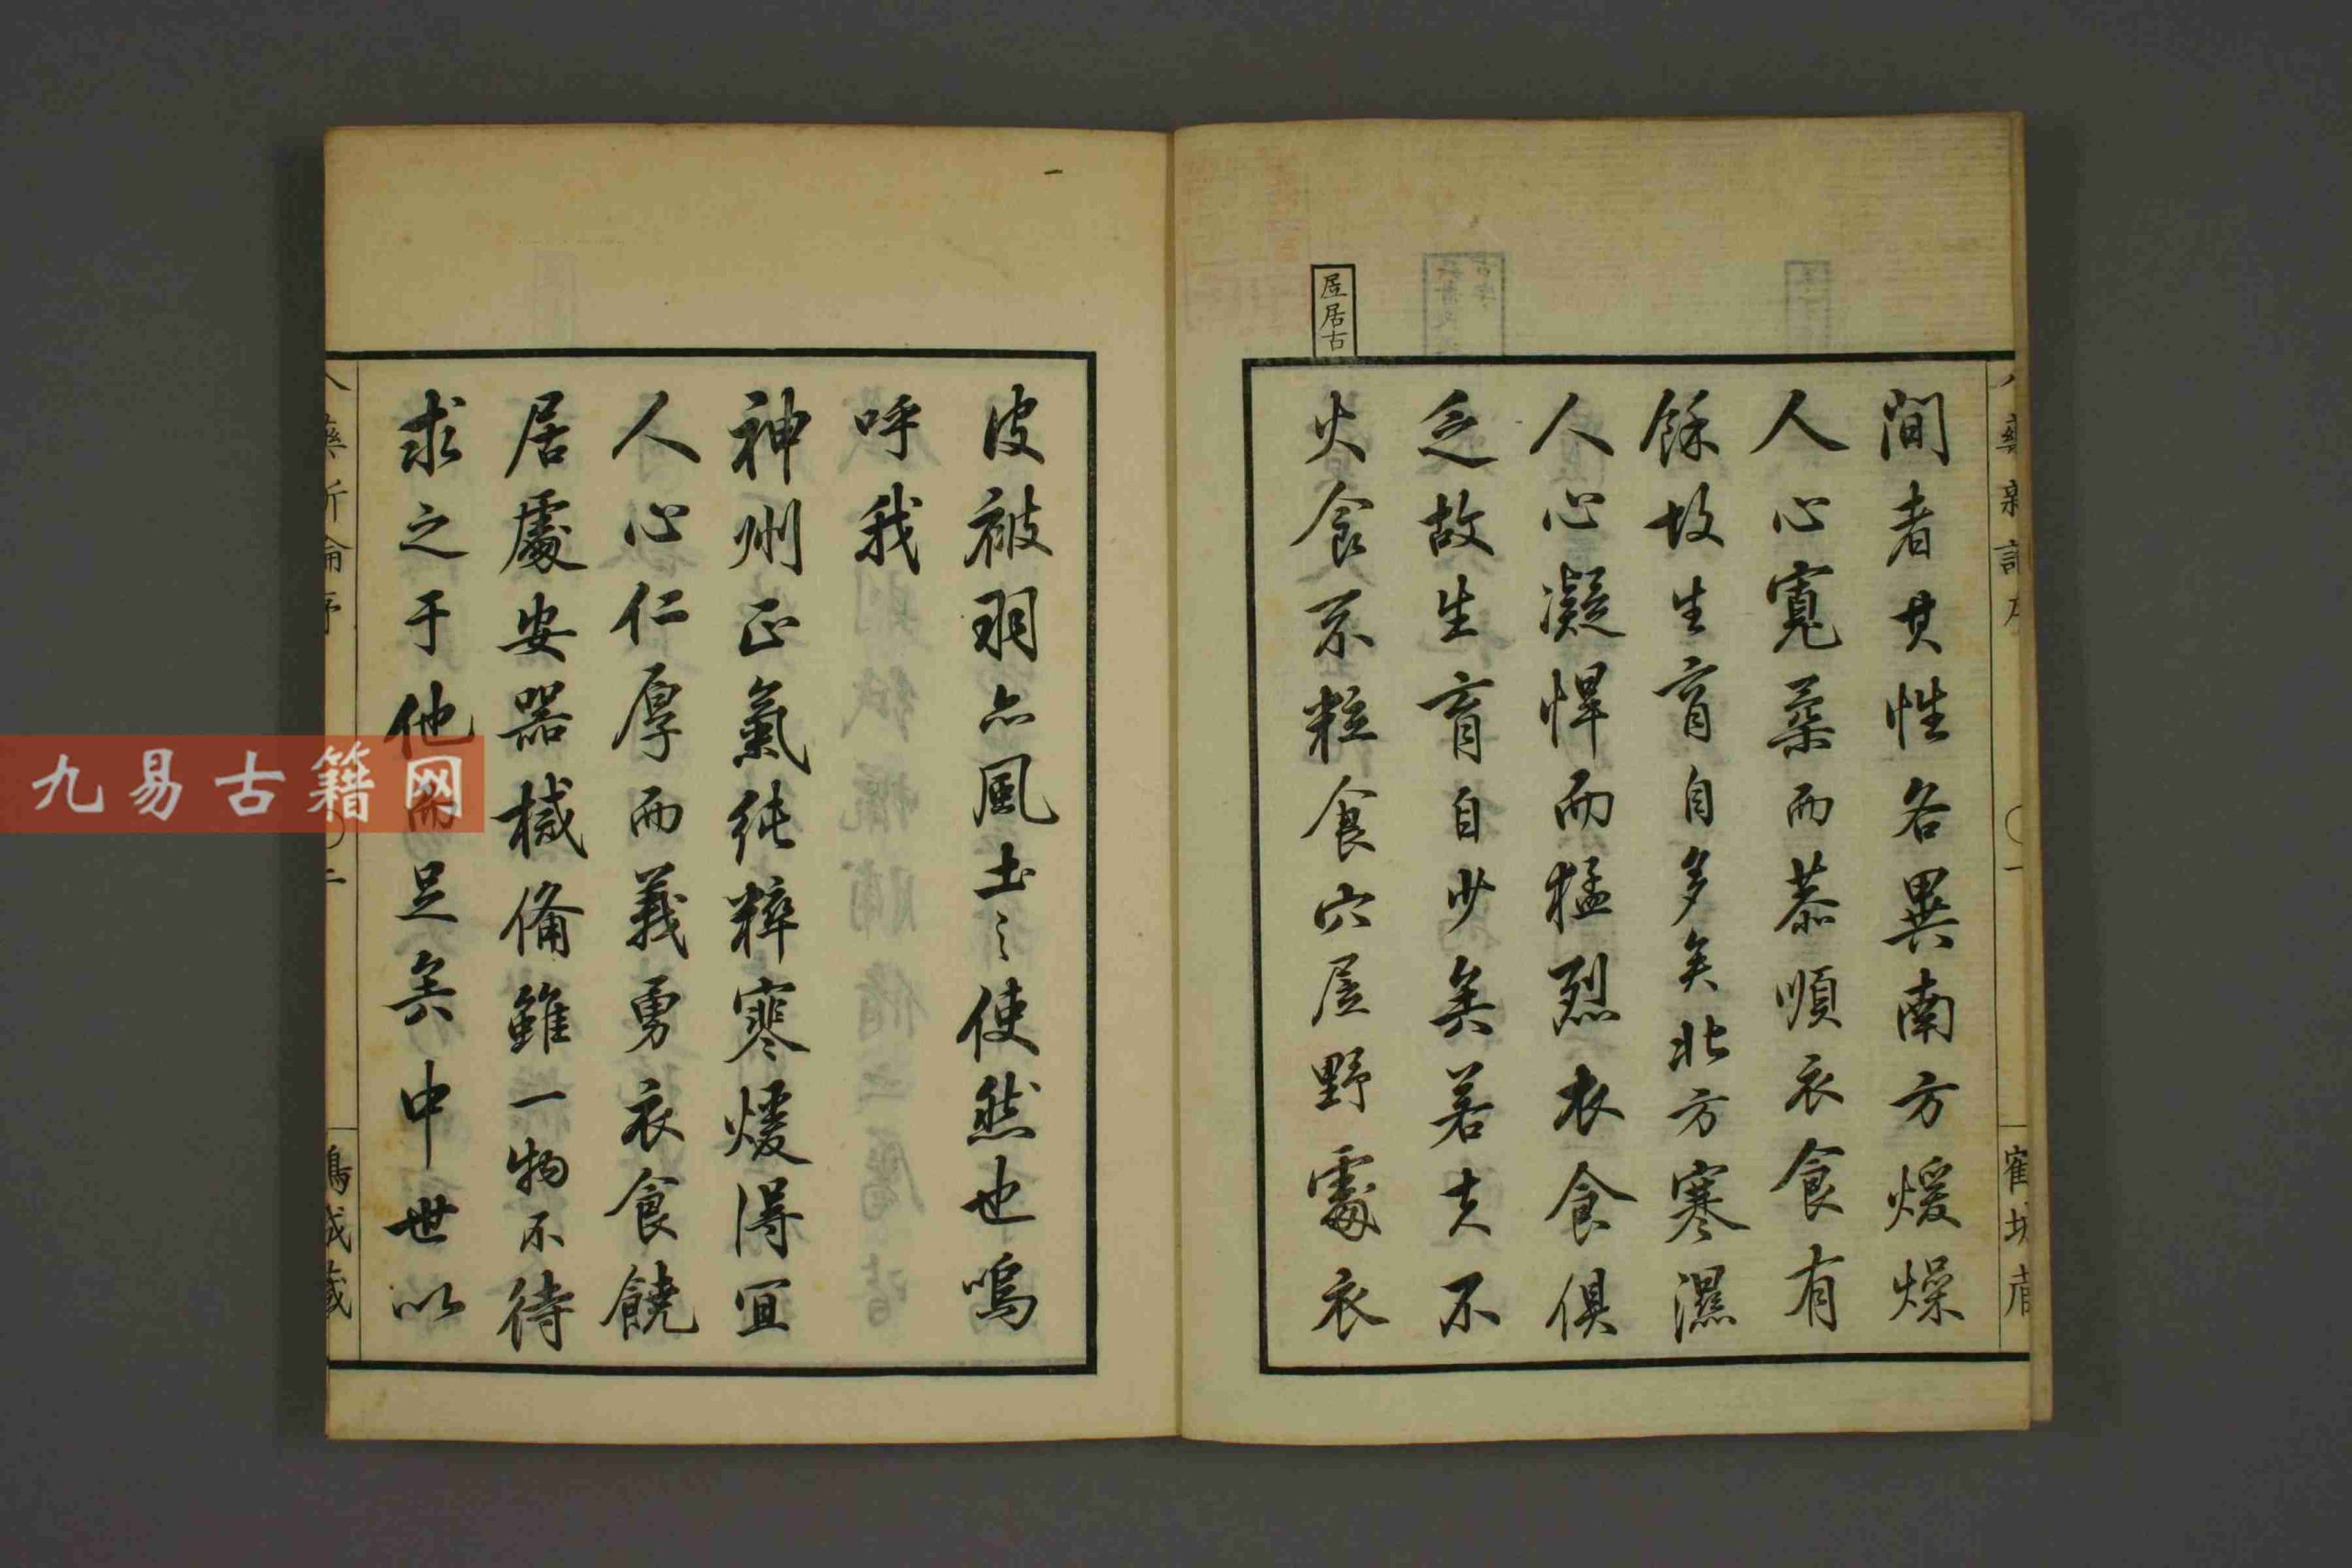 屋居古
間者其性各異南方煖燥
人心寬柔而恭順衣食有
餘故生育自多矣北方寒濕
人心凝悍而猛烈衣食俱
乏故生育自少矣若夫不
火食不粒食穴屋野處衣
皮被羽亦風土之使然也嗚
呼我
神州正氣純粹寒煖得宜
人心仁厚而義勇衣食饒
居處安器械備雖一物不待
求之于他而足矣中世以
九易古籍网